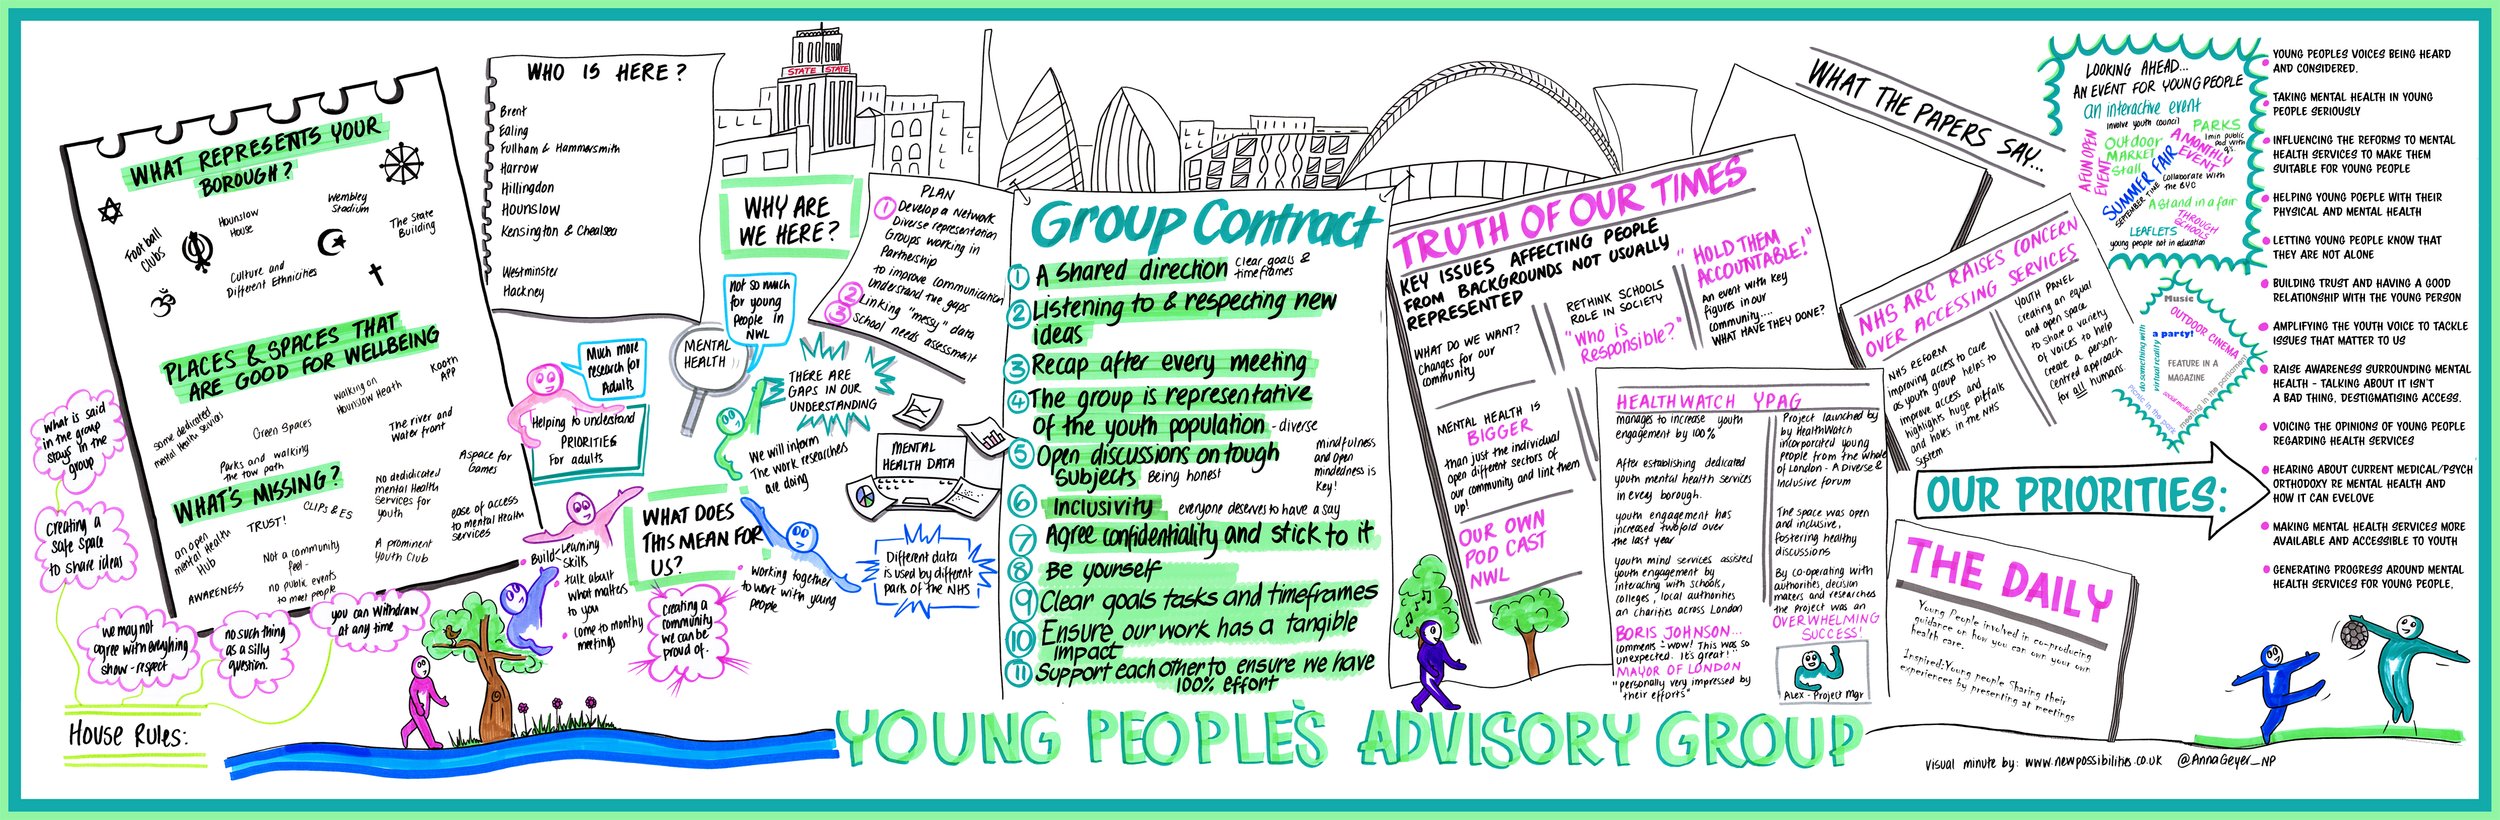 WHAT REPRESENTS YOUR
BOROUGH?
Football
Clubs
Hounslow
House
Wembley
Stadium
The State
Building
Culture and
Different Ethnicities
PLACES & SPACES THAT
ARE GOOD FOR WELLBEING
some dedicated
mental health servias
Green Spaces
walking on
Hounslow Heath
Kooth
APP
Parks and walking
the tow path
The river and
water front
A space for
Games
WHAT'S MISSING?
an open
mental Health
Hub
TRUST!
CLIPs & ES
No dedidicated
mental Health
Services for
youth
ease of access
to mental Health
services
AWARENESS
Not a community
feel -
no public events
to meet people
A prominent
Youth Club
what is said
in the group
stays in the
group
Creating a
safe space
to share ideas
we may not
agree with everything
show - respect
no such thing
as a silly
question.
you can withdraw
at any time
House Rules:
WHO IS HERE?
Brent
Ealing
Fullham & Hammersmith
Harrow
Hillingdon
Hounslow
Kensington & Chealsea
Westminster
Hackney
STATE STATE
WHY ARE
WE HERE?
Not so much
for young
People in
NWL
MENTAL
HEALTH
Much more
research for
Adults
Helping to understand
PRIORITIES
For adults
THERE ARE
GAPS IN OUR
UNDERSTANDING
We will inform
The work researchers
are doing
PLAN
1 Develop a Network
Diverse representation
Groups working in
Partnership
to improve communication
understand the gaps
2 Linking "messy" data
3 School needs assessment
MENTAL
HEALTH DATA
Different data
is used by different
parts of the NHS
WHAT DOES
THIS MEAN FOR
US?
Build - Learning
Skills
talk about
what matters
to you
come to monthy
meetings
Creating a
community
we can be
proud of.
working together
to work with young
people
Group Contract
1 A shared direction Clear goals &
timeframes
2 Listening to & respecting new
ideas
3 Recap after every meeting
4 The group is representative
of the youth population - diverse
5 Open discussions on tough
Subjects Being honest
mindfulness
and open
mindedness is
Key!
6 Inclusivity everyone deserves to have a say
7 Agree confidentiality and stick to it
8 Be yourself
9 Clear goals tasks and timeframes
10 Ensure our work has a tangible
impact
11 Support each other to ensure we have
100% effort
YOUNG PEOPLE'S ADVISORY GROUP
WHAT THE PAPERS SAY...
TRUTH OF OUR TIMES
KEY ISSUES AFFECTING PEOPLE
FROM BACKGROUNDS NOT USUALLY
REPRESENTED
WHAT DO WE WANT?
Changes for our
community
RETHINK SCHOOLS
ROLE IN SOCIETY
"Who is
Responsible?"
"HOLD THEM
ACCOUNTABLE!"
An event with key
figures in our
community....
WHAT HAVE THEY DONE?
MENTAL HEALTH IS
BIGGER
than just the individual
open different sectors of
our community and link them
up!
OUR OWN
POD CAST
NWL
HEALTHWATCH YPAG
manages to increase youth
engagement by 100%
After establishing dedicated
youth mental health services
in every borough.
youth engagement has
increased twofold over
the last year
Youth mind services assisted
youth engagement by
interacting with schools,
colleges, local authorities
an charities across London
BORIS JOHNSON...
comments - wow! This was so
unexpected. it's great!"
MAYOR OF LONDON
"personally very impressed by
their efforts"
Project launched by
by HealthWatch
incorporated young
people from the whole
of London - A Diverse &
Inclusive forum
The space was open
and inclusive,
fostering healthy
discussions
By co-operating with
authorities, decision
makers and researchers
the project was an
OVERWHELMING
SUCCESS!
Alex - Project Mgr
NHS ARC RAISES CONCERN
OVER ACCESSING SERVICES
NHS REFORM
improving access to care
as youth group helps to
improve access and
highlights huge pitfalls
and holes in the NHS
system
YOUTH PANEL
Creating an equal
and open space
to share a variety
of voices to help
create a person-
centred approach
for all humans.
THE DAILY
Young People involved in co-producing
guidance on how you can own your own
health care.
Inspired: Young people Sharing their
experiences by presenting at meetings
LOOKING AHEAD...
AN EVENT FOR YOUNG PEOPLE
an interactive event
involve youth council
PARKS
A FUN OPEN
EVENT
Outdoor
MARKET
Stall
1min public
pod with
q's.
A MONTHLY
EVENT
SUMMER FAIR
SEPTEMBER TIME
Collaborate with
the BYC
A stand in a fair
THROUGH
SCHOOLS
LEAFLETS
young people not in education
Music
a party!
OUTDOOR CINEMA
do something with
virtual reality
FEATURE IN A
MAGAZINE
Picnic in the park
social media
meeting in the parliament
OUR PRIORITIES:
YOUNG PEOPLES VOICES BEING HEARD
AND CONSIDERED.
TAKING MENTAL HEALTH IN YOUNG
PEOPLE SERIOUSLY
INFLUENCING THE REFORMS TO MENTAL
HEALTH SERVICES TO MAKE THEM
SUITABLE FOR YOUNG PEOPLE
HELPING YOUNG POEPLE WITH THEIR
PHYSICAL AND MENTAL HEALTH
LETTING YOUNG PEOPLE KNOW THAT
THEY ARE NOT ALONE
BUILDING TRUST AND HAVING A GOOD
RELATIONSHIP WITH THE YOUNG PERSON
AMPLIFYING THE YOUTH VOICE TO TACKLE
ISSUES THAT MATTER TO US
RAISE AWARENESS SURROUNDING MENTAL
HEALTH - TALKING ABOUT IT ISN'T
A BAD THING, DESTIGMATISING ACCESS.
VOICING THE OPINIONS OF YOUNG PEOPLE
REGARDING HEALTH SERVICES
HEARING ABOUT CURRENT MEDICAL/PSYCH
ORTHODOXY RE MENTAL HEALTH AND
HOW IT CAN EVELOVE
MAKING MENTAL HEALTH SERVICES MORE
AVAILABLE AND ACCESSIBLE TO YOUTH
GENERATING PROGRESS AROUND MENTAL
HEALTH SERVICES FOR YOUNG PEOPLE.
visual minute by: www.newpossibilities.co.uk @AnnaGeyer_NP